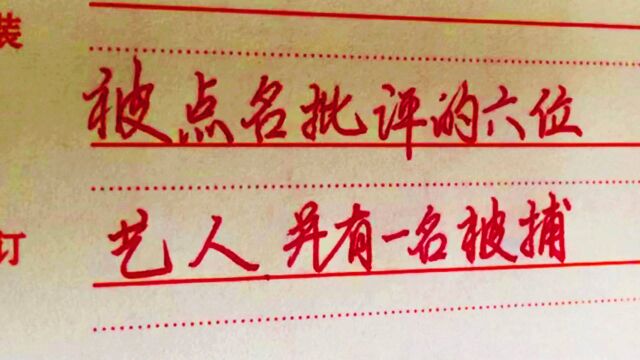 装
被点名批评的六位
订
艺人 并有一名被捕